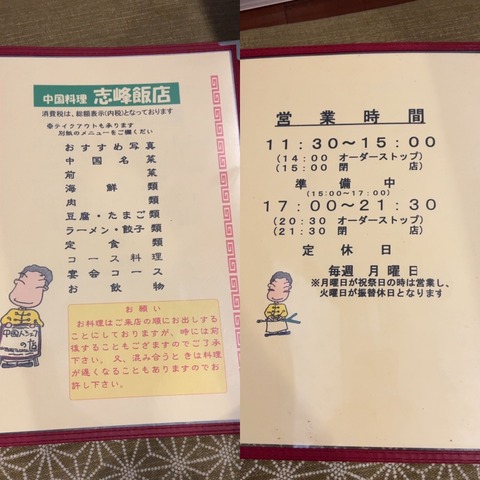 中国料理 志峰飯店
消費税は、総額表示(内税)となっております
※テイクアウトも承ります
別紙のメニューをご欄くだい
おすすめ写真
中国名菜
前菜
海鮮類
肉類
豆腐・たまご類
ラーメン・餃子類
定食類
コース料理
宴会コース
お飲物
お願い
お料理はご来店の順にお出しする
ことにしておりますが、時には前
後することもござますのでご了承
下さい。又、混み合うときは料理
が遅くなることもありますのでお
許し下さい。
中国人シェフ
の店
営業時間
11:30～15:00
(14:00 オーダーストップ)
(15:00 閉店)
準備中
(15:00～17:00)
17:00～21:30
(20:30 オーダーストップ)
(21:30 閉店)
定休日
毎週 月曜日
※月曜日が祝祭日の時は営業し、
火曜日が振替休日となります